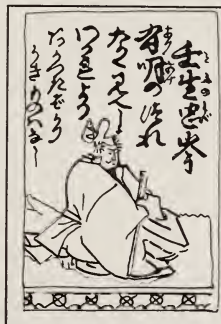 壬生忠岑
有明のつれ
なく見えし
わかれより
あかつきばかり
うきものはなし